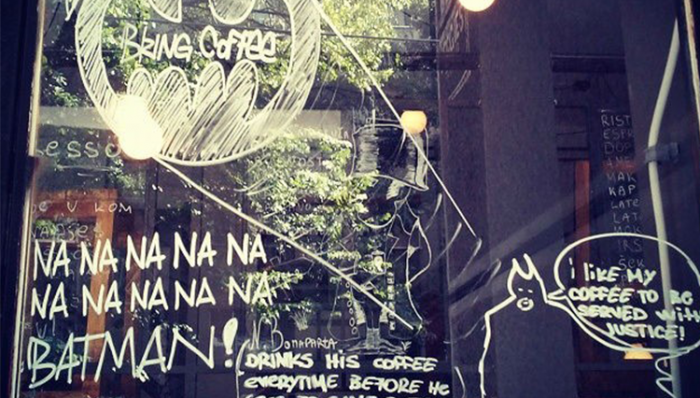 BRING COFFEE
esso
e U KOM
NA NA NA NA NA
NA NA NA NA NA
BATMAN!
N. BONAPARTA
DRINKS HIS COFFEE
EVERYTIME BEFORE HE
i LiKE MY
COFFEE TO BE
SERVED WITH
JUSTICE!
RIST
ESPR
DOP
MAK
KAP
LATE
LAT